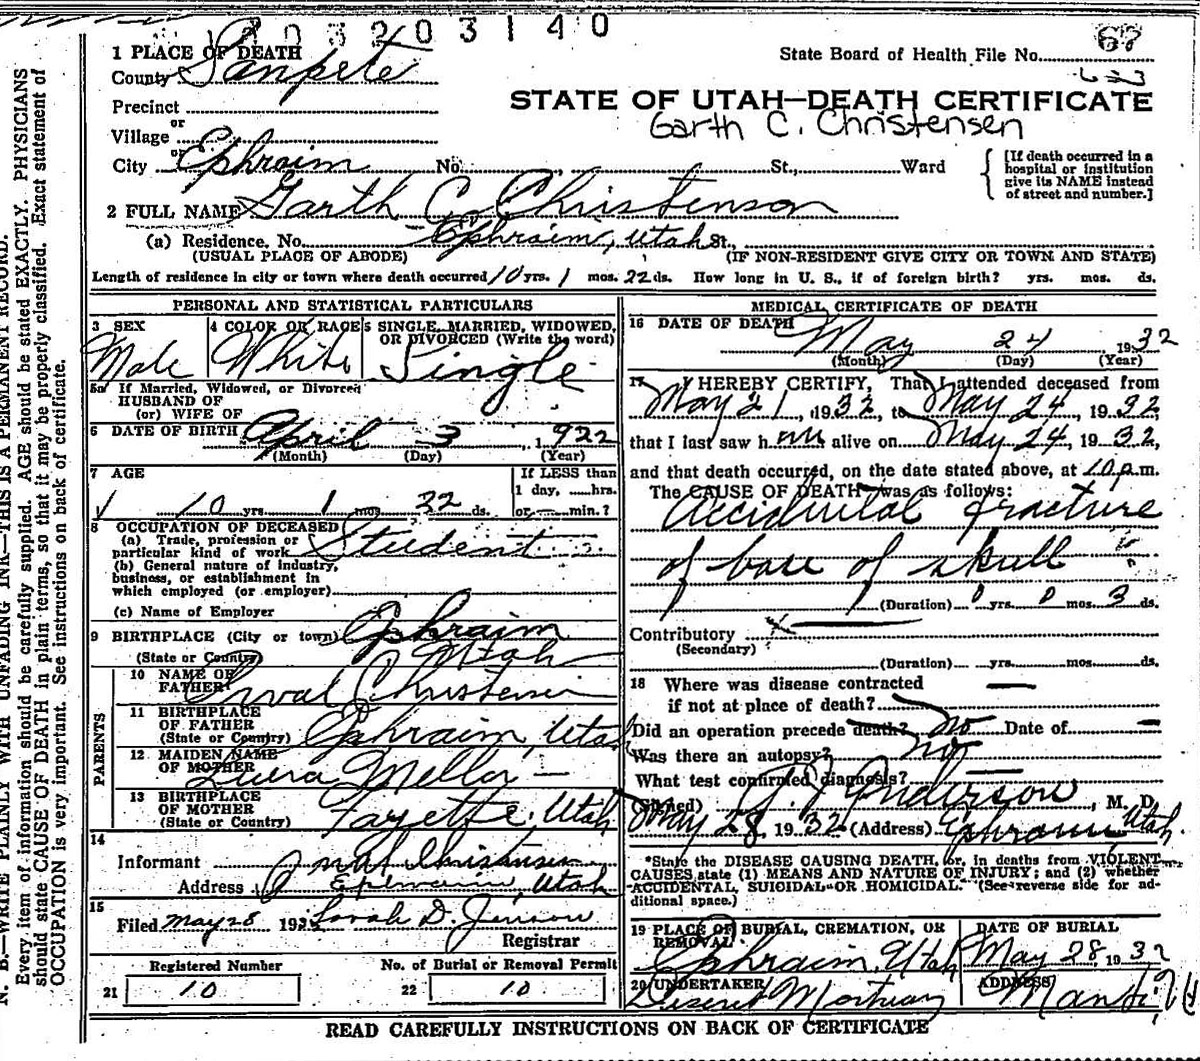 203140
1 PLACE OF DEATH
State Board of Health File No. 68
County Sanpete
Precinct
or
Village
or
City Ephraim No. St., Ward
STATE OF UTAH—DEATH CERTIFICATE
Garth C. Christensen
{ [If death occurred in a
hospital or institution
give its NAME instead
of street and number.]
2 FULL NAME Garth C. Christenson
(a) Residence, No. Ephraim, Utah St.,
(USUAL PLACE OF ABODE) (IF NON-RESIDENT GIVE CITY OR TOWN AND STATE)
Length of residence in city or town where death occurred 10 yrs. 1 mos. 22 ds. How long in U. S., if of foreign birth? yrs. mos. ds.
PERSONAL AND STATISTICAL PARTICULARS
3 SEX
Male
4 COLOR OR RACE
White
5 SINGLE, MARRIED, WIDOWED,
OR DIVORCED (Write the word)
Single
5a If Married, Widowed, or Divorced
HUSBAND OF
(or) WIFE OF
6 DATE OF BIRTH April 3, 1922
(Month) (Day) (Year)
7 AGE
10 yrs. 1 mos. 22 ds.
If LESS than
1 day, hrs.
or min.?
8 OCCUPATION OF DECEASED
(a) Trade, profession or
particular kind of work Student
(b) General nature of industry,
business, or establishment in
which employed (or employer)
(c) Name of Employer
9 BIRTHPLACE (City or town) Ephraim
(State or Country) Utah
PARENTS
10 NAME OF
FATHER Orval Christensen
11 BIRTHPLACE
OF FATHER
(State or Country) Ephraim, Utah
12 MAIDEN NAME
OF MOTHER Laura Mellor
13 BIRTHPLACE
OF MOTHER
(State or Country) Fayette, Utah
14
Informant Christensen
Address Ephraim, Utah
15
Filed May 28 193 Sarah D. Jenson
Registrar
Registered Number
21 10
No. of Burial or Removal Permit
22 10
MEDICAL CERTIFICATE OF DEATH
16 DATE OF DEATH May 24 1932
(Month) (Day) (Year)
17 I HEREBY CERTIFY, That I attended deceased from
May 21, 1932, to May 24, 1932,
that I last saw him alive on May 24, 1932,
and that death occurred, on the date stated above, at 10 p.m.
The CAUSE OF DEATH was as follows:
Accidental fracture
of base of skull
(Duration) 0 yrs. 0 mos. 3 ds.
Contributory
(Secondary)
(Duration) yrs. mos. ds.
18 Where was disease contracted
if not at place of death?
Did an operation precede death? No Date of
Was there an autopsy? No
What test confirmed diagnosis?
(Signed) Anderson, M. D.
May 28, 1932 (Address) Ephraim, Utah.
*State the DISEASE CAUSING DEATH, or, in deaths from VIOLENT
CAUSES state (1) MEANS AND NATURE OF INJURY; and (2) whether
ACCIDENTAL, SUICIDAL OR HOMICIDAL. (See reverse side for ad-
ditional space.)
19 PLACE OF BURIAL, CREMATION, OR
REMOVAL
Ephraim, Utah
DATE OF BURIAL
May 28, 1932
20 UNDERTAKER
Deseret Mortuary
ADDRESS
Manti, Ut
READ CAREFULLY INSTRUCTIONS ON BACK OF CERTIFICATE
N. B.—WRITE PLAINLY WITH UNFADING INK—THIS IS A PERMANENT RECORD.
Every item of information should be carefully supplied. AGE should be stated EXACTLY. PHYSICIANS
should state CAUSE OF DEATH in plain terms, so that it may be properly classified. Exact statement of
OCCUPATION is very important. See instructions on back of certificate.